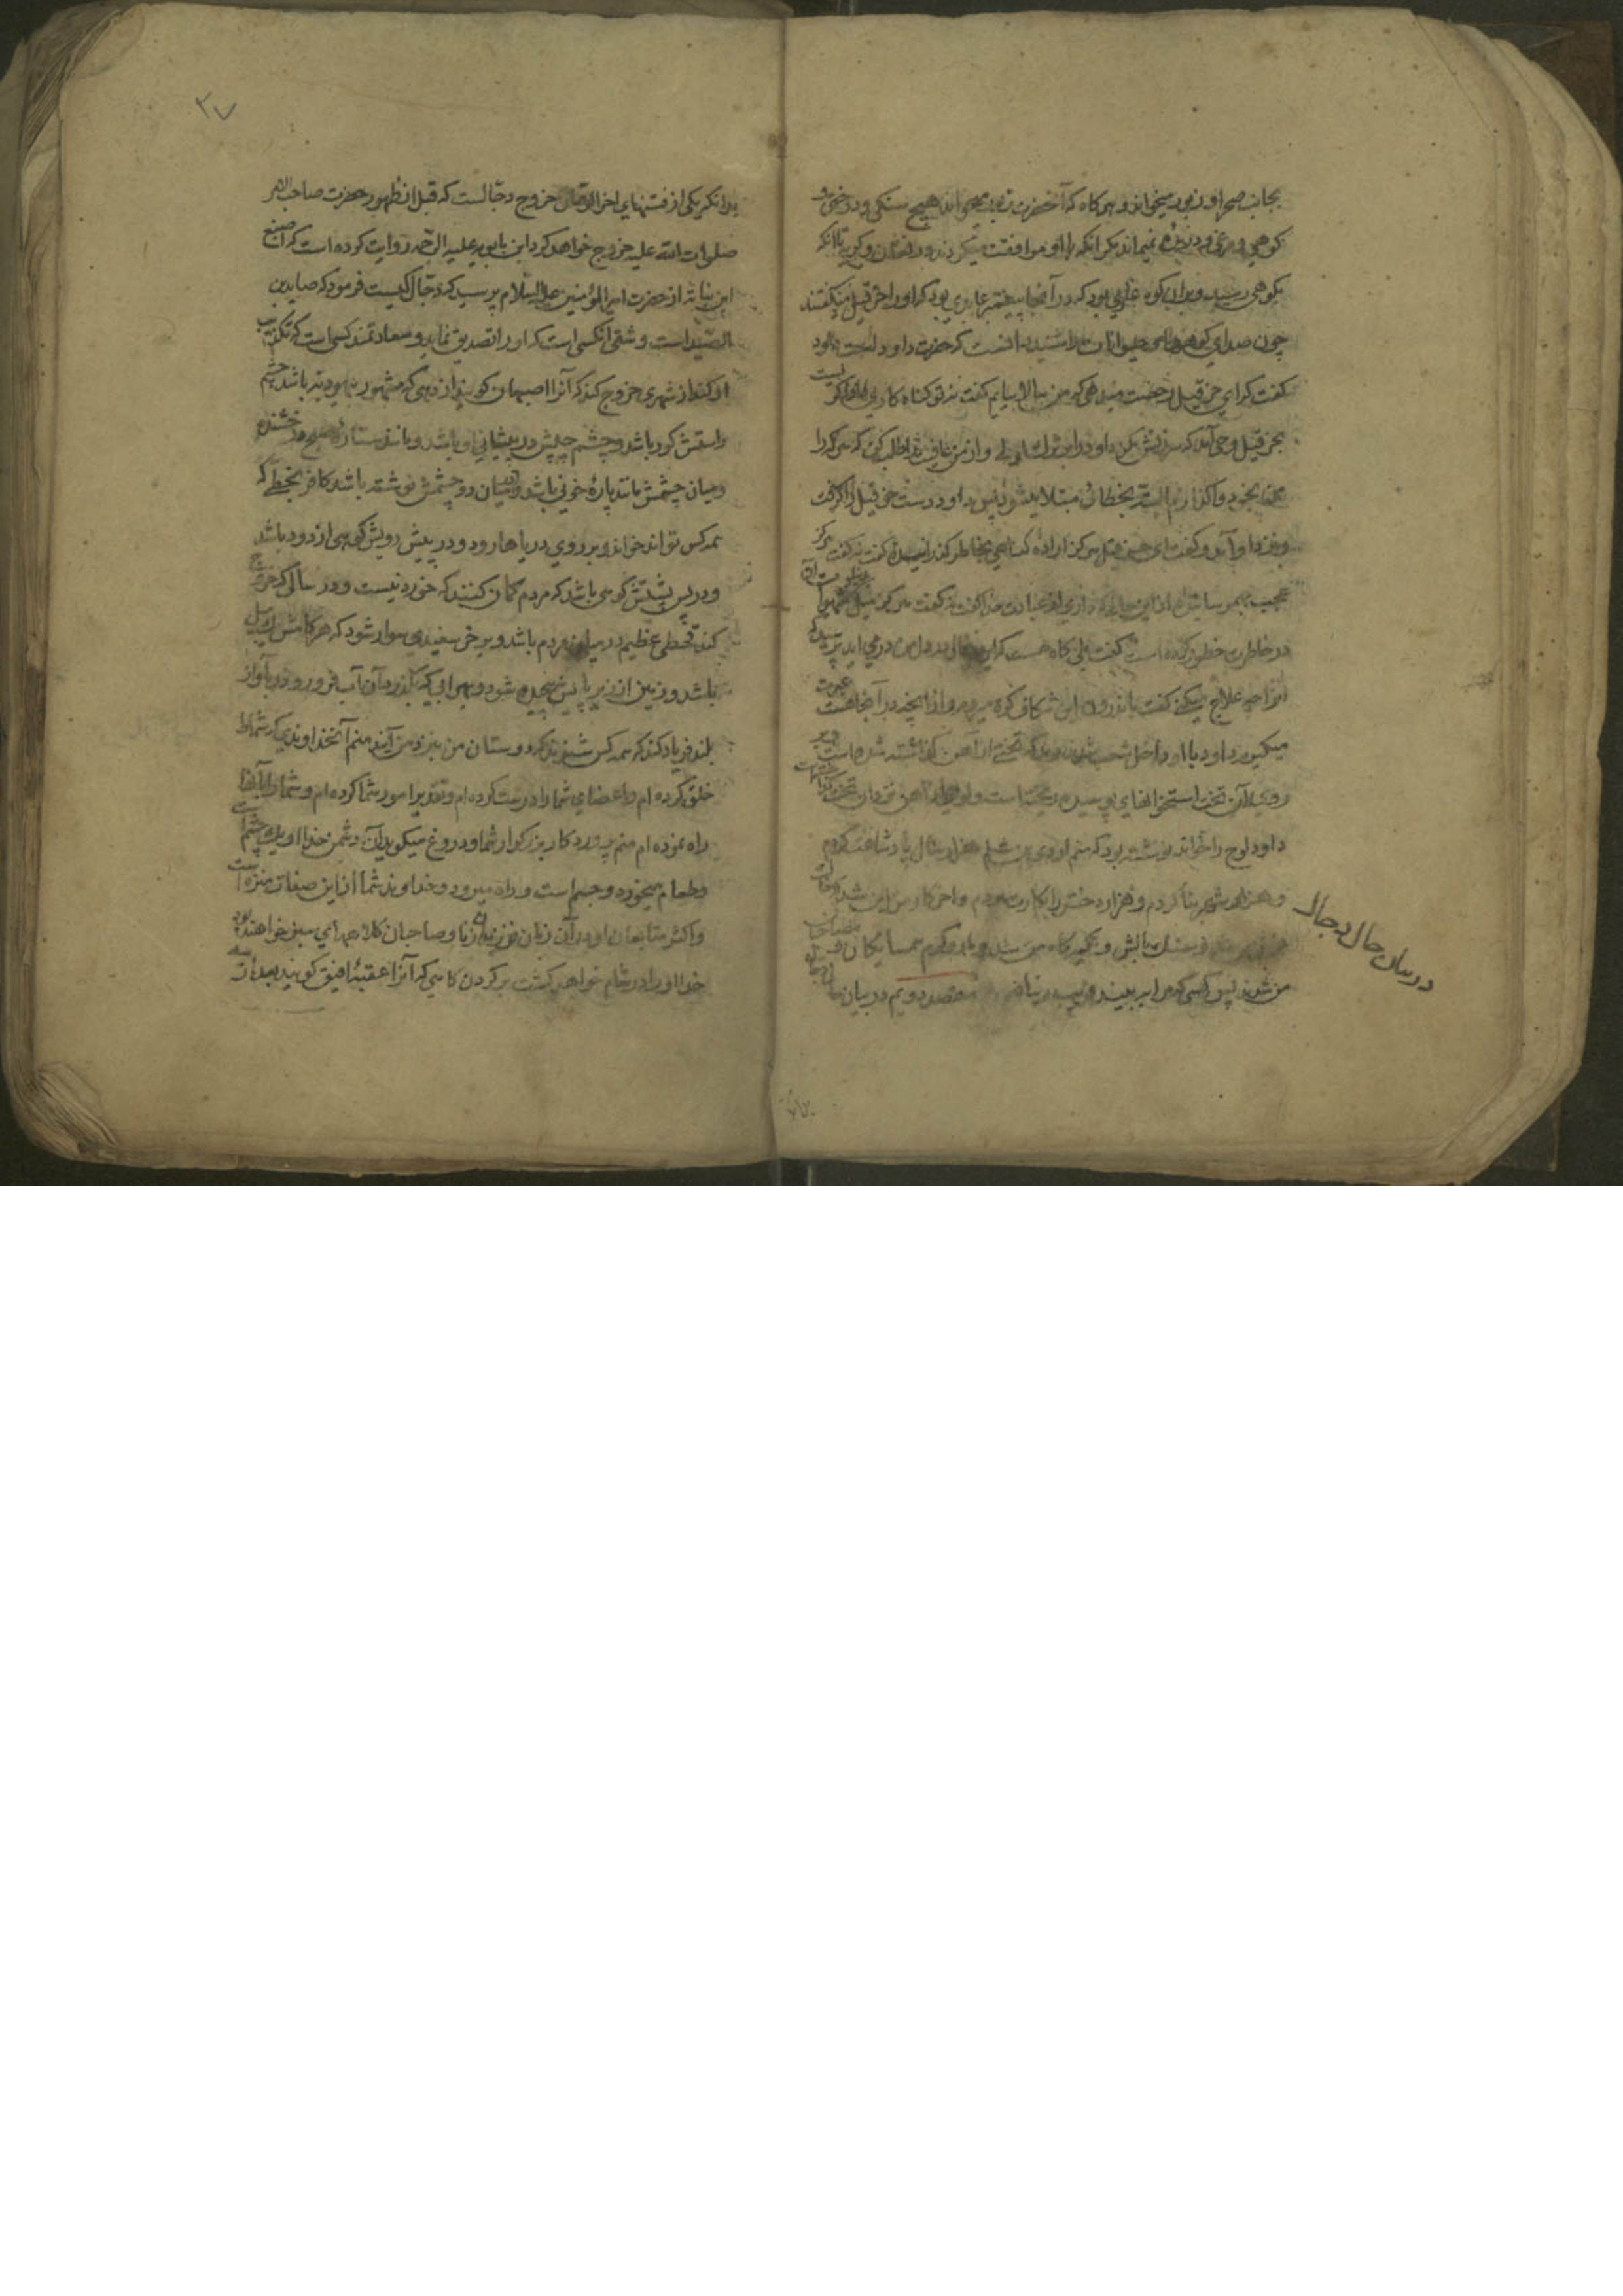 بجانب صحرا و زبور میخواند و هر کاه که آنحضرت زبور میخواند هیچ سنکی و درختی و
کوهی و مرغی و درنده نمیماند مکر آنکه با او موافقت میکردند تا آنکه
بکوهی رسید و بر آن کوه غاری بود که در آنجا پیغمبر عابدی بود که او را حزقیل میکفتند
چون صدای کوهها و حیوانات را شنید دانست که حضرت داود است داود
کفت که ای حزقیل رخصت میدهی که من بالا بیایم کفت نه تو کناه کاری
بحزقیل وحی آمد که سرزنش مکن داود را بترک اولی و از من عافیت طلب کن که هر که را
من بخود واکذارم البته بخطائی مبتلا میشود پس داود دست حزقیل را کرفت
و بنزد او آمد و کفت ای حزقیل هرکز اراده کناهی بخاطر کذرانیده کفت نه کفت هرکز
عجب بهم رسانیدی از این حالی که داری از عبادت خدا کفت نه کفت هرکز میل
در خاطرت خطور کرده است کفت بلی کاه هست که این خیال در دل من در می آید پرسید که
آنرا چه علاج میکنی کفت باندرون این شکاف کوه میروم و از آنچه در آنجا هست عبرت
میکیرم داود با او داخل شعب شد دید که تختی از آهن کذاشته شده است و بر
روی آن تخت استخوانهای پوسیده ریخته است و لوحی از آهن نزد آن تخت کذاشته است
داود لوح را خواند نوشته بود که منم اروی بن شلم هزار سال پادشاهی کردم
و هزار شهر بنا کردم و هزار دختر را بکارت بردم و آخر کار من این شد که خاک
فرش من و سنک بالش و تکیه کاه من شد و مار و کرم همسایکان و مصاحبان
من شدند پس کسی که مرا ببیند فریب دنیا نخورد مقصد دویم در بیان حال دجال
در بیان حال دجال
۳۷
بدانکه یکی از فتنهای آخر الزمان خروج دجالست که قبل از ظهور حضرت صاحب الامر
صلوات الله علیه خروج خواهد کرد ابن بابویه علیه الرحمه روایت کرده است که اصبغ
ابن نباته از حضرت امیرالمؤمنین علیه السلام پرسید که دجال کیست فرمود که صاید بن
الصید است و شقی آنکسی است که او را تصدیق نماید و سعادتمند کسی است که تکذیب
او کند از شهری خروج کند که آنرا اصبهان کویند از دهی که مشهور بیهودیه باشد چشم
راستش کور باشد و چشم چپش در پیشانی او باشد و مانند ستاره صبح درخشنده
و میان چشمش مانند پاره خونی باشد و میان دو چشمش نوشته باشد کافر بخطی که
همه کس تواند خواند و بر روی دریاها رود و در پیش رویش کوهی از دود باشد
و در پس پشتش کوهی باشد که مردم کمان کنند که خوردنیست و در سالی که خروج
کند قحطی عظیم در میان مردم باشد و بر خر سفیدی سوار شود که هر کامش یک میل
باشد و زمین از زیر پایش پیچیده شود و بهر آبی که بکذرد آن آب فرو رود و بآواز
بلند فریاد کند که همه کس شنوند که دوستان من بنزد من آیند منم آنخداوندی که شما را
خلق کرده ام و اعضای شما را درست کرده ام و تقدیر امور شما کرده ام و شما را بآنها
راه نموده ام منم پروردکار بزرکوار شما و دروغ میکوید آن دشمن خدا او یک چشم است
و طعام میخورد و جسم است و راه میرود و خداوند شما از این صفات منزه است
و اکثر متابعان او در آن زمان فرزندان زنا و صاحبان کلاههای سبز خواهند بود
خدا او را در شام خواهد کشت بر کردن کاهی که آنرا عقبه افیق کویند بعد از سه